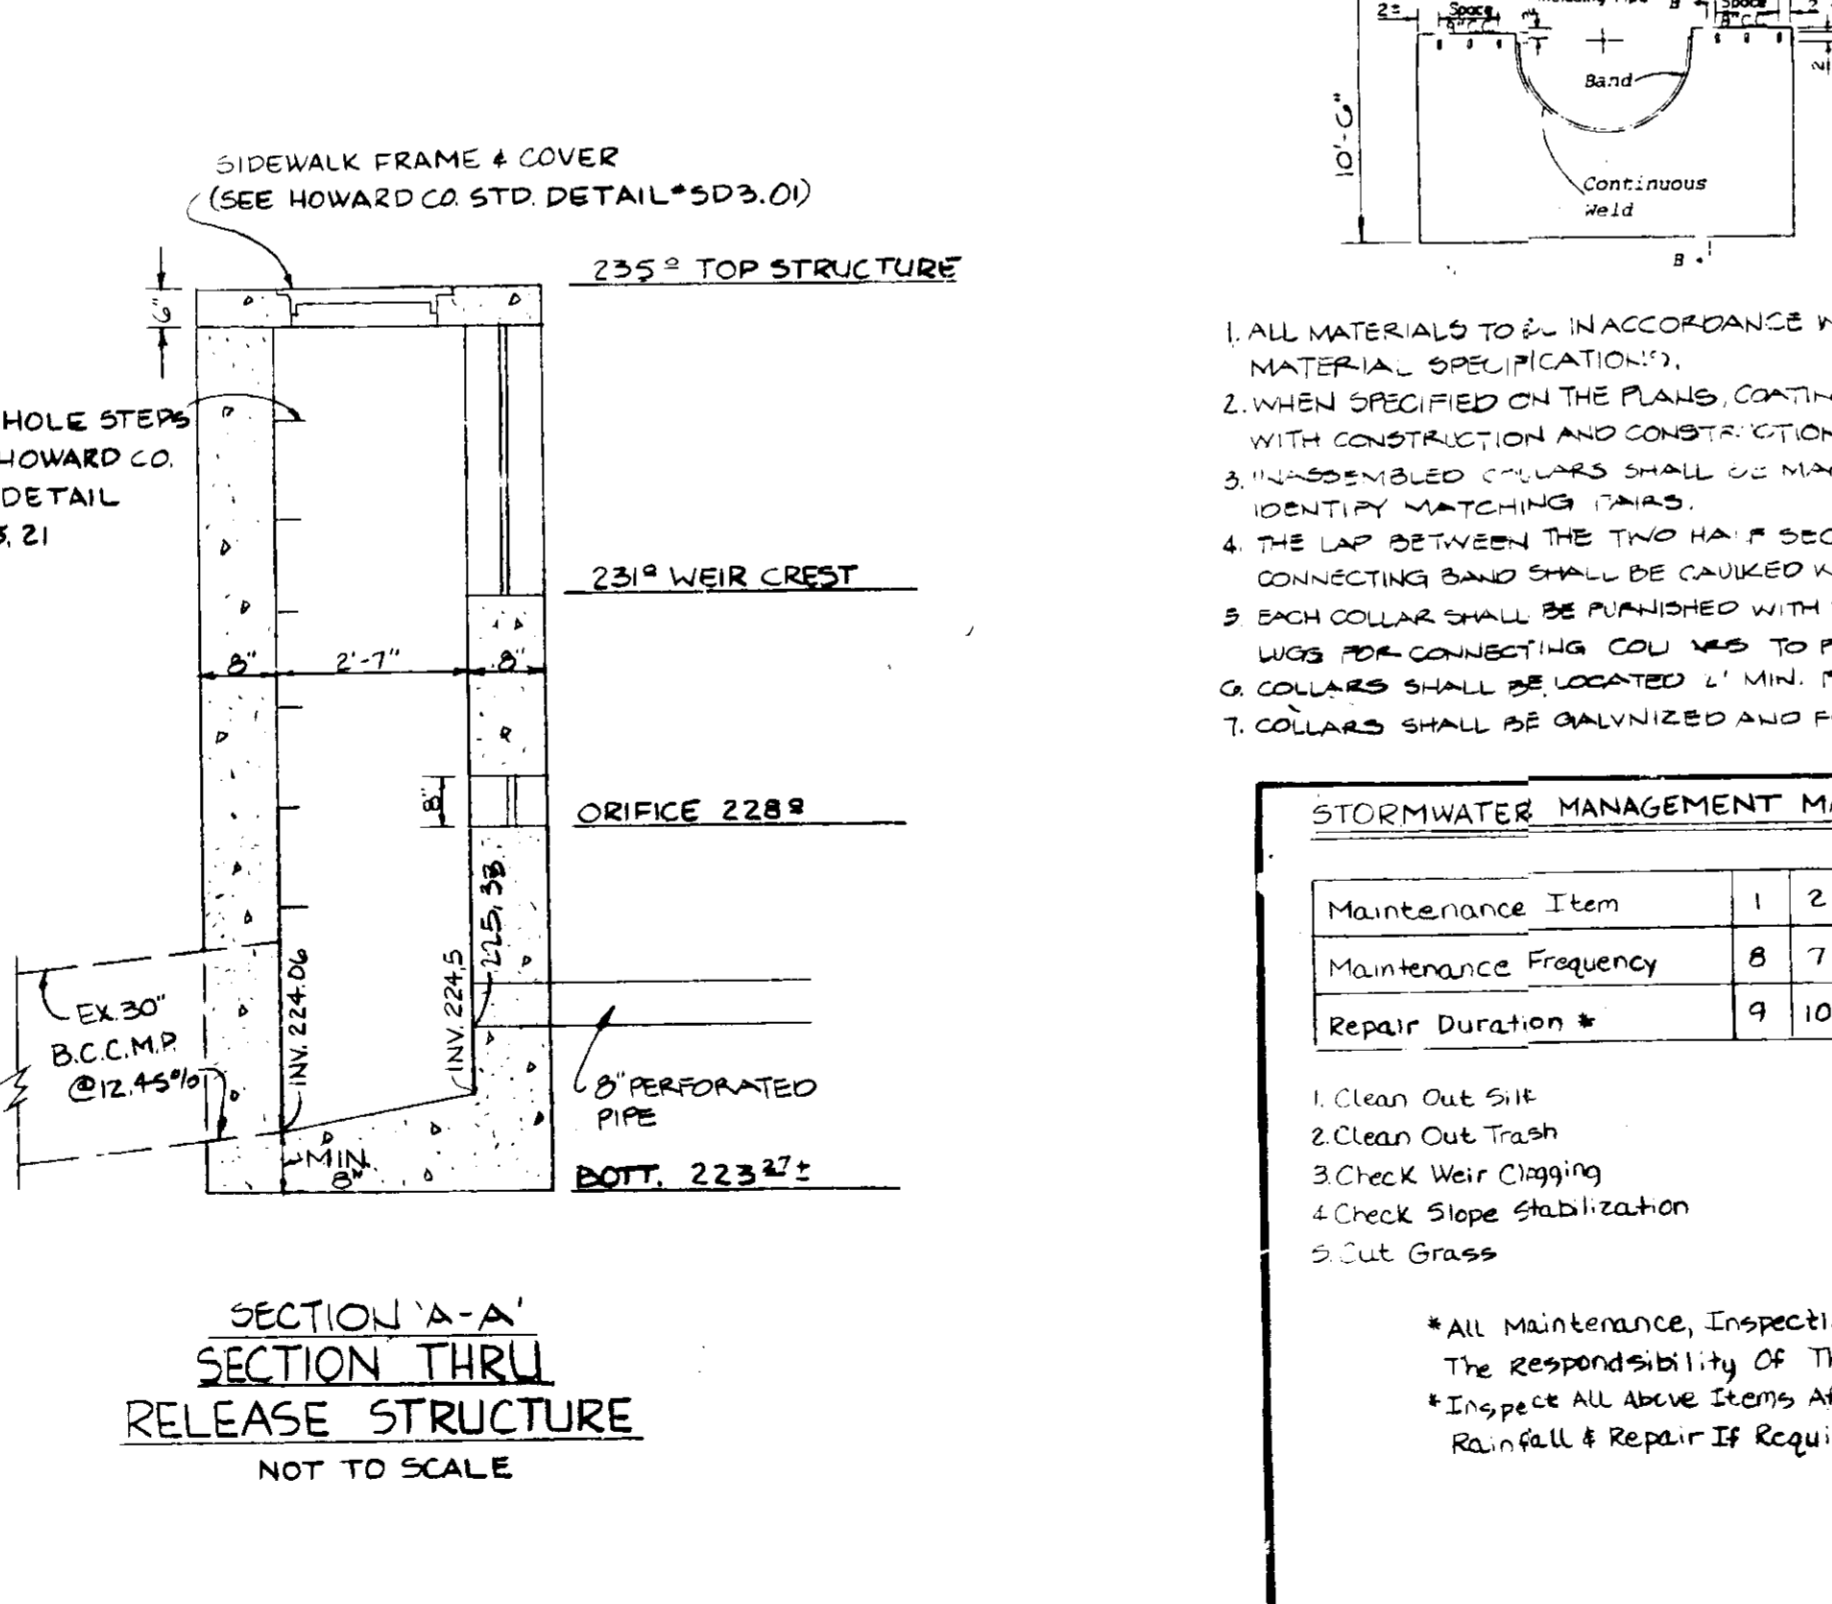 SIDEWALK FRAME & COVER
(SEE HOWARD CO. STD. DETAIL #SD3.01)
235.0 TOP STRUCTURE
6"
HOLE STEPS
HOWARD CO.
DETAIL
21
231.0 WEIR CREST
8" 2'-7" 8"
8"
ORIFICE 228
225.33
INV. 224.06
INV. 224.5
EX. 30"
B.C.C.M.P.
@12.45%
8" PERFORATED
PIPE
MIN.
8"
BOTT. 223.27±
SECTION 'A-A'
SECTION THRU
RELEASE STRUCTURE
NOT TO SCALE
Space
8"C.C.
Pipe
B
Space
8"C.C.
2
Band
10'-6"
Continuous
Weld
B
1. ALL MATERIALS TO IN ACCORDANCE
MATERIAL SPECIFICATIONS.
2. WHEN SPECIFIED ON THE PLANS,
WITH CONSTRUCTION AND
3. UNASSEMBLED COLLARS SHALL BE
IDENTIFY MATCHING PAIRS.
4. THE LAP BETWEEN THE TWO HALF
CONNECTING BAND SHALL BE CAULKED
5. EACH COLLAR SHALL BE FURNISHED WITH
LUGS FOR CONNECTING TO
6. COLLARS SHALL BE LOCATED MIN.
7. COLLARS SHALL BE GALVNIZED AND
STORMWATER MANAGEMENT
Maintenance Item 1 2
Maintenance Frequency 8 7
Repair Duration * 9 10
1. Clean Out Silt
2. Clean Out Trash
3. Check Weir Clogging
4. Check Slope Stabilization
5. Cut Grass
*All Maintenance,
The Respondsibility Of
*Inspect All Above Items
Rainfall & Repair If